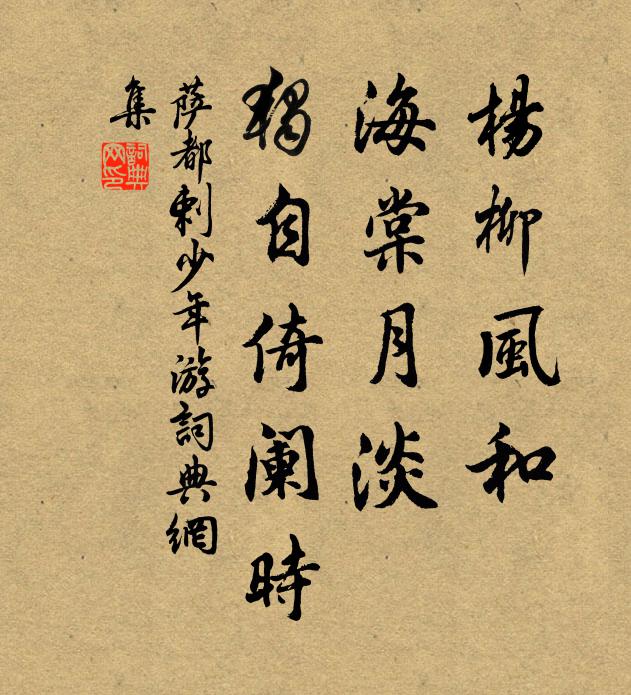 楊柳風和
海棠月淡
獨自倚阑時
萨都剌少年游詞典網
集
詞典網印